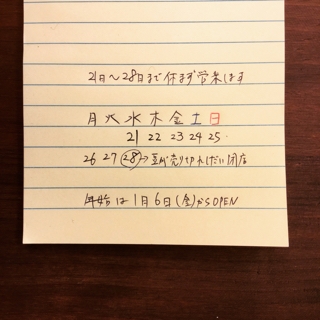 21日～28日まで休まず営業します
月火水木金土日
21 22 23 24 25
26 27 28→豆が売り切れしだい閉店
年始は1月6日(金)からOPEN